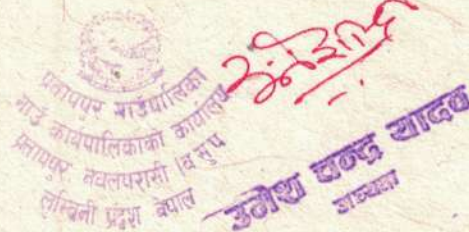 प्रतापपुर गाउँपालिका
गाउँ कार्यपालिकाको कार्यालय
प्रतापपुर नवलपरासी (ब.सु.प
लुम्बिनी प्रदेश नेपाल
उमेश चन्द्र यादव
अध्यक्ष